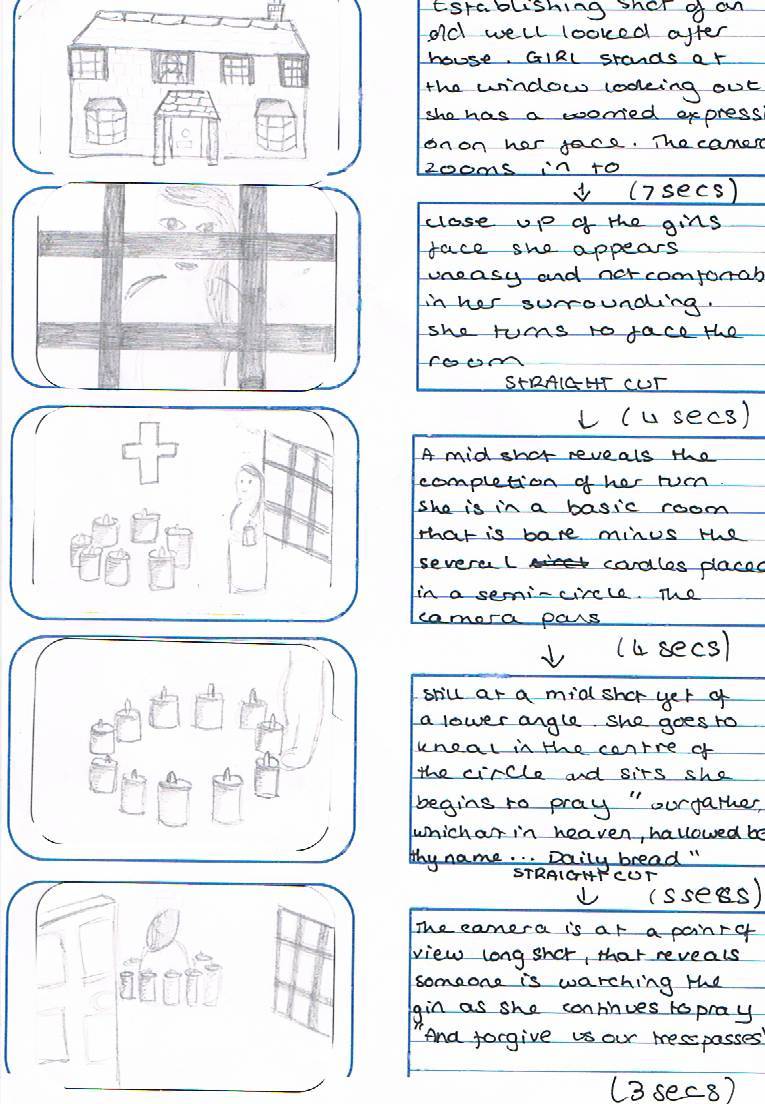 Establishing shot of an
old well looked after
house. GIRL stands at
the window looking out
she has a worried expressi
on on her face. The camera
zooms in to
↓ (7 secs)
close up of the girls
face she appears
uneasy and not comfortab
in her surrounding.
she turns to face the
room
STRAIGHT CUT
↓ (4 secs)
A mid shot reveals the
completion of her turn
she is in a basic room
that is bare minus the
several candles placed
in a semi-circle. The
camera pans
↓ (4 secs)
still at a mid shot yet of
a lower angle. she goes to
kneal in the centre of
the circle and sits she
begins to pray "our father,
which art in heaven, hallowed be
thy name... Daily bread"
STRAIGHT CUT
↓ (5 secs)
The camera is at a point of
view long shot, that reveals
someone is watching the
girl as she continues to pray
"And forgive us our tresspasses"
(3 secs)